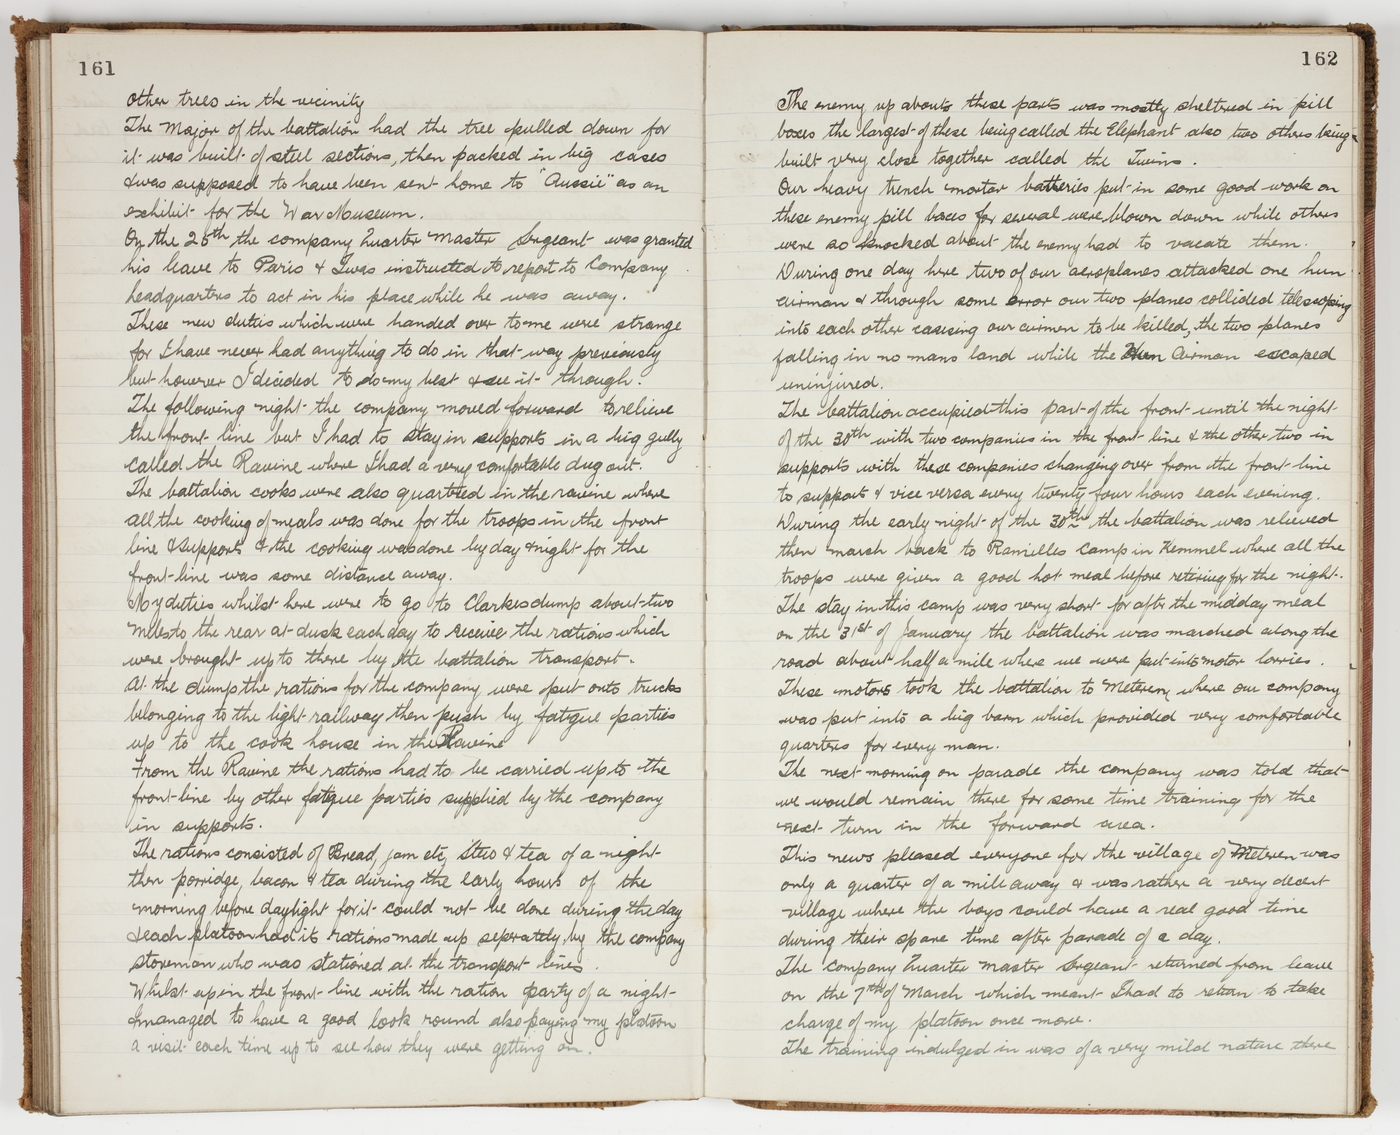 161
other trees in the vicinity
The Major of the battalion had the tree pulled down for
it was built of steel sections, then packed in big cases
& was supposed to have been sent home to "Aussie" as an
exhibit for the War Museum.
On the 25th the company Quarter Master Sergeant was granted
his leave to Paris & I was instructed to report to Company
headquarters to act in his place while he was away.
These new duties which were handed over to me were strange
for I have never had anything to do in that way previously
but however I decided to do my best & see it through.
The following night the company moved forward to relieve
the front line but I had to stay in supports in a big gully
called the Ravine where I had a very comfortable dug out.
The battalion cooks were also quartered in the ravine where
all the cooking of meals was done for the troops in the front
line & supports & the cooking was done by day & night for the
front line was some distance away.
My duties whilst here were to go to Clarkes dump about two
miles to the rear at dusk each day to receive the rations which
were brought up to there by the battalion transport.
At the dump the rations for the company were put onto trucks
belonging to the light railway then push by fatigue parties
up to the cook house in the Ravine
From the Ravine the rations had to be carried up to the
front line by other fatigue parties supplied by the company
in supports.
The rations consisted of Bread, jam etc, Stew & tea of a night
then porridge, bacon & tea during the early hours of the
morning before daylight for it could not be done during the day
& each platoon had its rations made up seperately by the company
storeman who was stationed at the transport lines.
Whilst up in the front line with the ration party of a night
I managed to have a good look round also paying my platoon
a visit each time up to see how they were getting on.
162
The enemy up abouts these parts was mostly sheltered in pill
boxes the largest of these being called the Elephant also two others being
built very close together called the Twins.
Our heavy trench mortar batteries put in some good work on
these enemy pill boxes for several were blown down while others
were so knocked about the enemy had to vacate them.
During one day here two of our aeroplanes attacked one hun
airman & through some error our two planes collided telescoping
into each other causing our airmen to be killed, the two planes
falling in no mans land while the Hun Airman escaped
uninjured.
The battalion occupied this part of the front until the night
of the 30th with two companies in the front line & the other two in
supports with these companies changing over from the front line
to support & vice versa every twenty four hours each evening.
During the early night of the 30th the battalion was relieved
then march back to Ramilles Camp in Kemmel where all the
troops were given a good hot meal before retiring for the night.
The stay in this camp was very short for after the midday meal
on the 31st of January the battalion was marched along the
road about half a mile where we were put into motor lorries.
These motors took the battalion to Meteren where our company
was put into a big barn which provided very comfortable
quarters for every man.
The next morning on parade the company was told that
we would remain there for some time training for the
next turn in the forward area.
This news pleased everyone for the village of Meteren was
only a quarter of a mile away & was rather a very decent
village where the boys could have a real good time
during their spare time after parade of a day.
The company Quarter Master Sergeant returned from leave
on the 7th of March which meant I had to return to take
charge of my platoon once more.
The training indulged in was of a very mild nature there